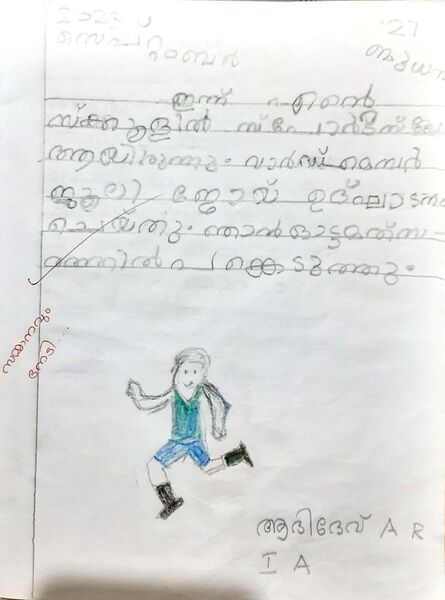 2023 27
സെപ്റ്റംബർ ബുധൻ
ഇന്ന് എന്റെ
സ്ക്കൂളിൽ സ്പോർട്സ്
ആയിരുന്നു. വാർഡ് മെമ്പർ
ജൂലി ഉദ്ഘാടനം
ചെയ്തു. ഞാൻ ഓട്ടമത്സ-
രത്തിൽ പങ്കെടുത്തു.
സമ്മാനവും
നേടി...
ആദിദേവ് A R
I A